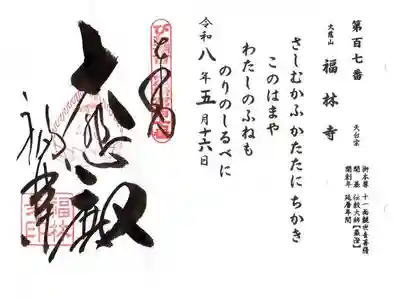 第百七番
大慈山 福林寺 天台宗
御本尊 十一面観世音菩薩
開基 伝教大師【最澄】
開創年 延暦年間
さしむかふかたたにちかき
このはまや
わたしのふねも
のりのしるべに
令和八年五月十六日
大悲殿
福林寺
福林寺印